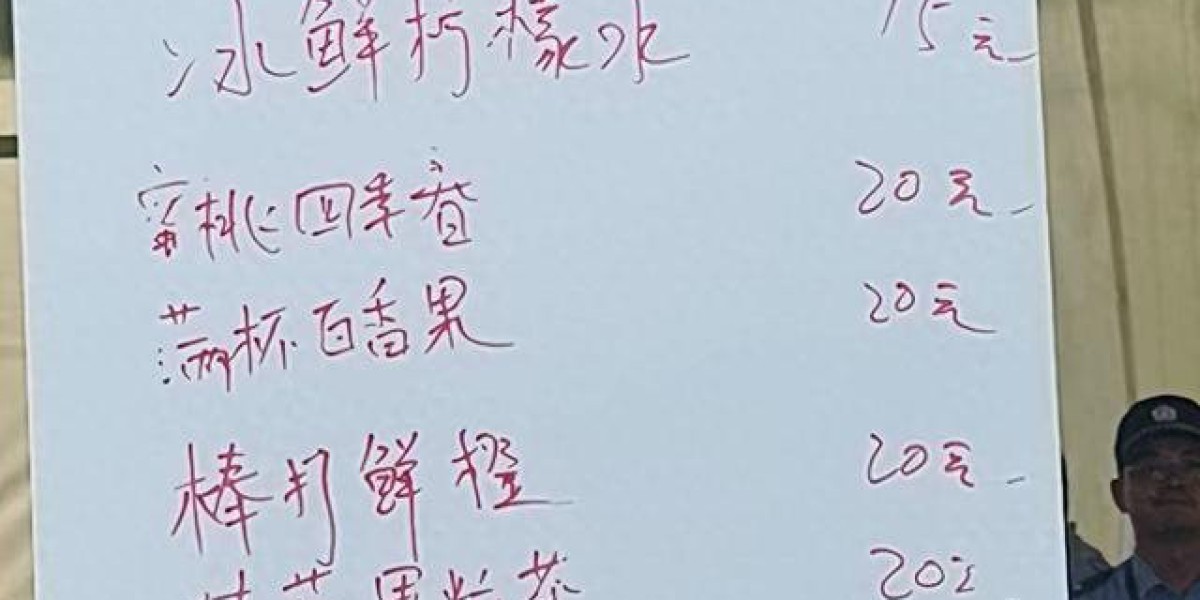 冰鲜柠檬水 15元
蜜桃四季春 20元
满杯百香果 20元
棒打鲜橙 20元
果粒茶 20元